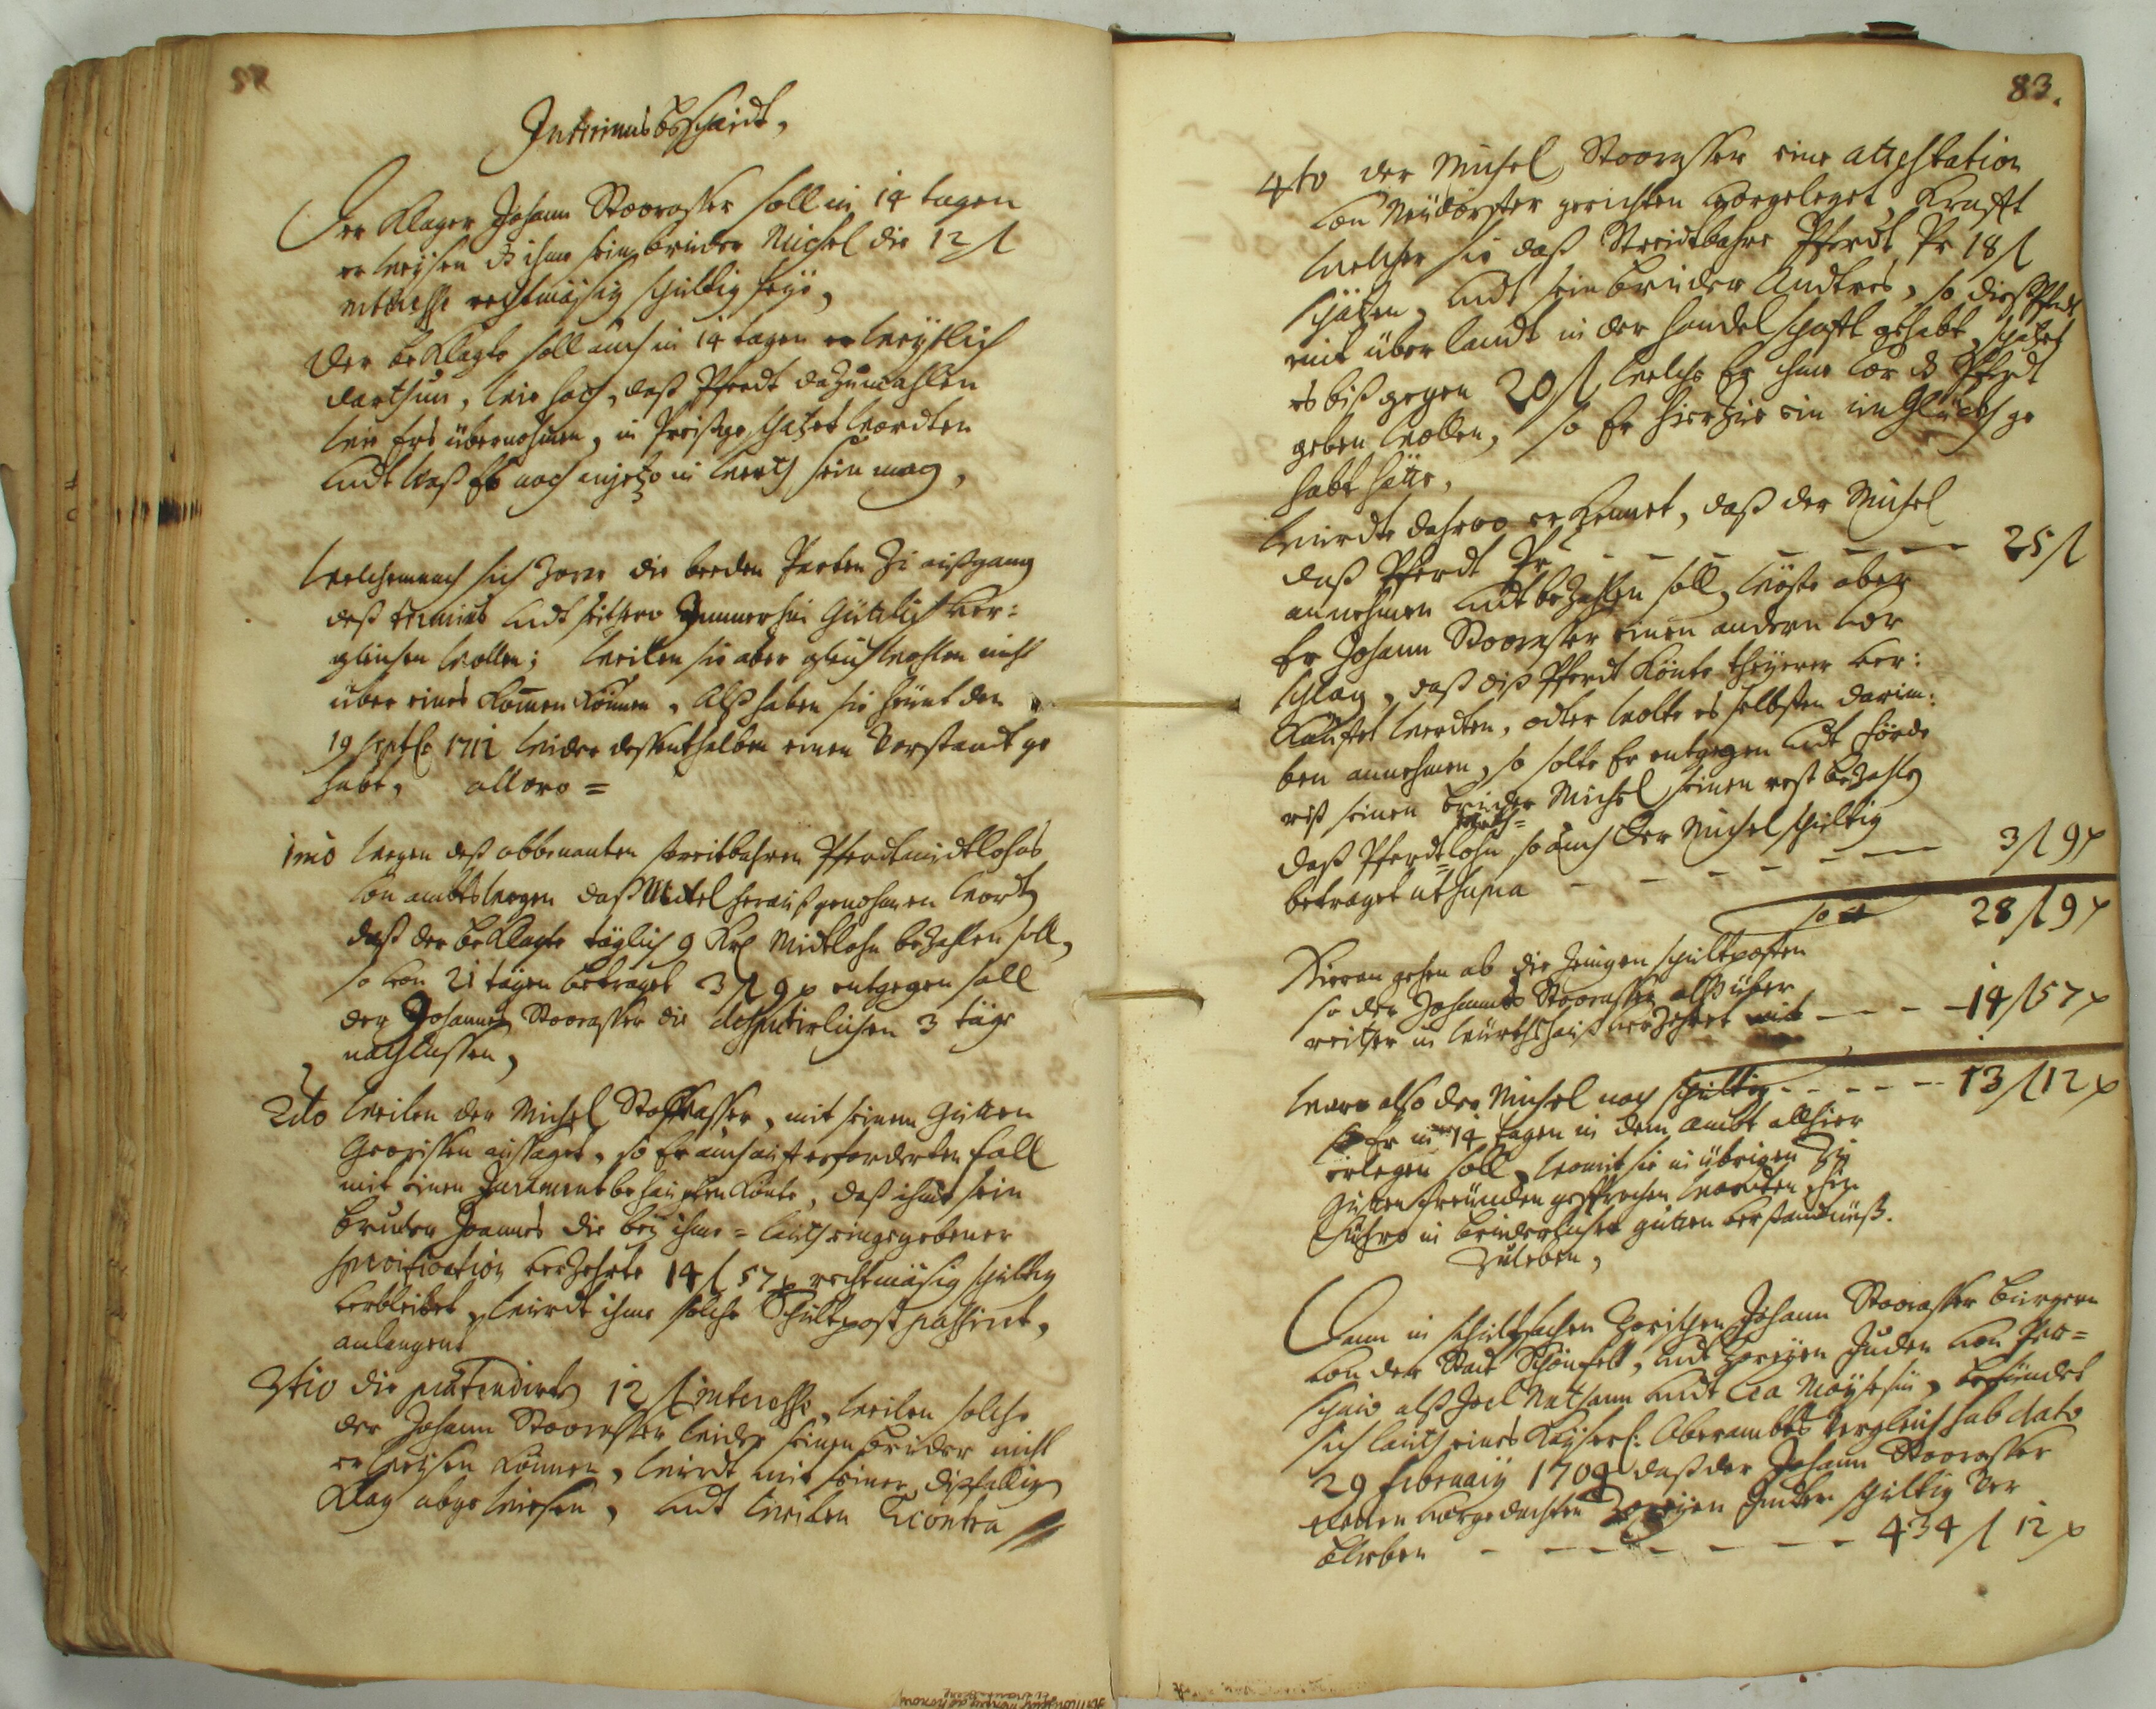 82
Interims bschaidt,
Der Klager Johann Stoorasser soll in 14 tagen
erweisen dz ihme sein bruder Michel die 12 f
interesse rechtmäsig schultig seye,
Der beklagte soll auch in 14 tagen erweyslich
darthun, wie hoch, daß Pferdt dazumahlen
wie Ers übernohmen, in Preiß geschazet wordten
undt waß Es noch anjezo in werth sein mag,
Welchemnach sich zwar die beeden Parten zu außgang
deß termins undt seithero Immerhin güttlich ver:
gleichen wollen; weilen sie aber gleichwohlen nicht
über eines kommen können, Alß haben sie heünt den
19 Septb: 1712 wider dessenthalben einen Vorstandt ge
habt, alwo =
1mo wegen deß obbenanten streitbahren Pferdtmidtlohns
von ambts wegen daß Mitel herauß genohmen wordt
daß der beklagte täglich 9 Krl Midtlohn bezahlen soll,
so von 21 tägen betraget 3 f 9 x entgegen soll
der Johannes Stoorasser die disputirlichen 3 täge
nachlassen,
2do weilen der Michel Stoorasser, mit seinem gutten
Gewissen aussaget, so Er auch auf erforderten fall
mit einen Jurament behaupten könte, daß ihme sein
bruder Joannes die bey ihme = lauth eingegebener
specification verzehrte 14 f 57 x rechtmäsig schultig
verbleibet, wirdt ihme solche Schultpost passirt,
anlangent
3tio die praetendirte 12 f interesse, weilen solche
der Johann Stoorasser wider seinen bruder nicht
erweisen können, wirdt mit seiner dißfalligen
Klag abgewiesen, undt weilen Econtra
83.
4to der Michel Stoorasser eine attestation
von Neüdörfler gerichten vorgeleget Krafft
welcher sie daß Streidtbahre Pferdt Pr 18 f
schäzen, undt sein bruder Andres, so dieß Pferdt
mit über landt in der handelschafft gehabt, schäzet
es biß gegen 20 f, welche Er ihme vor dz Pferdt
geben wollen, so Er hierzue ein im Glückh ge
habt hätte,
Wirdte dahero erkennet, daß der Michel
daß Pferdt Pr - - - - - - 25 f
annehmen undt bezahlen soll, wüste aber
Er Johann Stoorasser einen andern vor
schlag, daß diß Pferdt könte theyerer ver:
kauffet werdten, odter wolte es selbsten darim:
ben annehmen, so solte Er entgegen undt förde
rist seinen bruder Michel seinen rest bezahlen
daß Pferdt=lohn so auch der Michel schultig
betraget in suma - - - - - - 3 f 9 x
28 f 9 x
Hievon gehen ab die jenigen schultposten
so der Johannes Stoorasser alß über
reither in würthshauß verzehret mit - - - 14 f 57 x
Were also der Michel noch schultig - - - - - 13 f 12 x
so Er in 14 tagen in dem ambt allhier
erlegen soll, womit sie in übrigen zu
gutten freünden gesprochen wordten, hin
führo in brüderlicher gutten verständnüß.
zuleben,
Dann in schultsachen zwischen Johann Stoorasser burgern
von der Statt Schönfelt, undt zweyen Juden von Per=
schaw alß Joel Nathann undt Lea Moysesin, befündet
sich lauth eines Kayserl: Oberambts Vergleich sub dato
29 february 1709 daß der Johann Stoorasser
denen vorgedachten Zweyen Juden schultig ver
blieben - - - - - - - 434 f 12 x